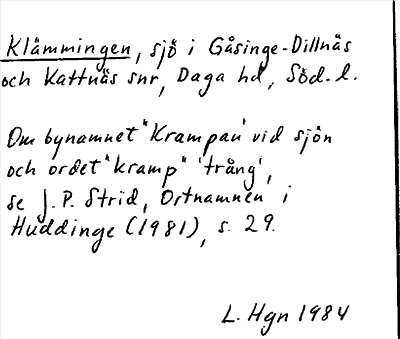 Klämmingen, sjö i Gåsinge-Dillnäs
och Kattnäs snr, Daga hd, Söd. l.
Om bynamnet "Krampan" vid sjön
och ordet "kramp" 'trång',
se J. P. Strid, Ortnamnen i
Huddinge (1981), s. 29.
L. Hgn 1984